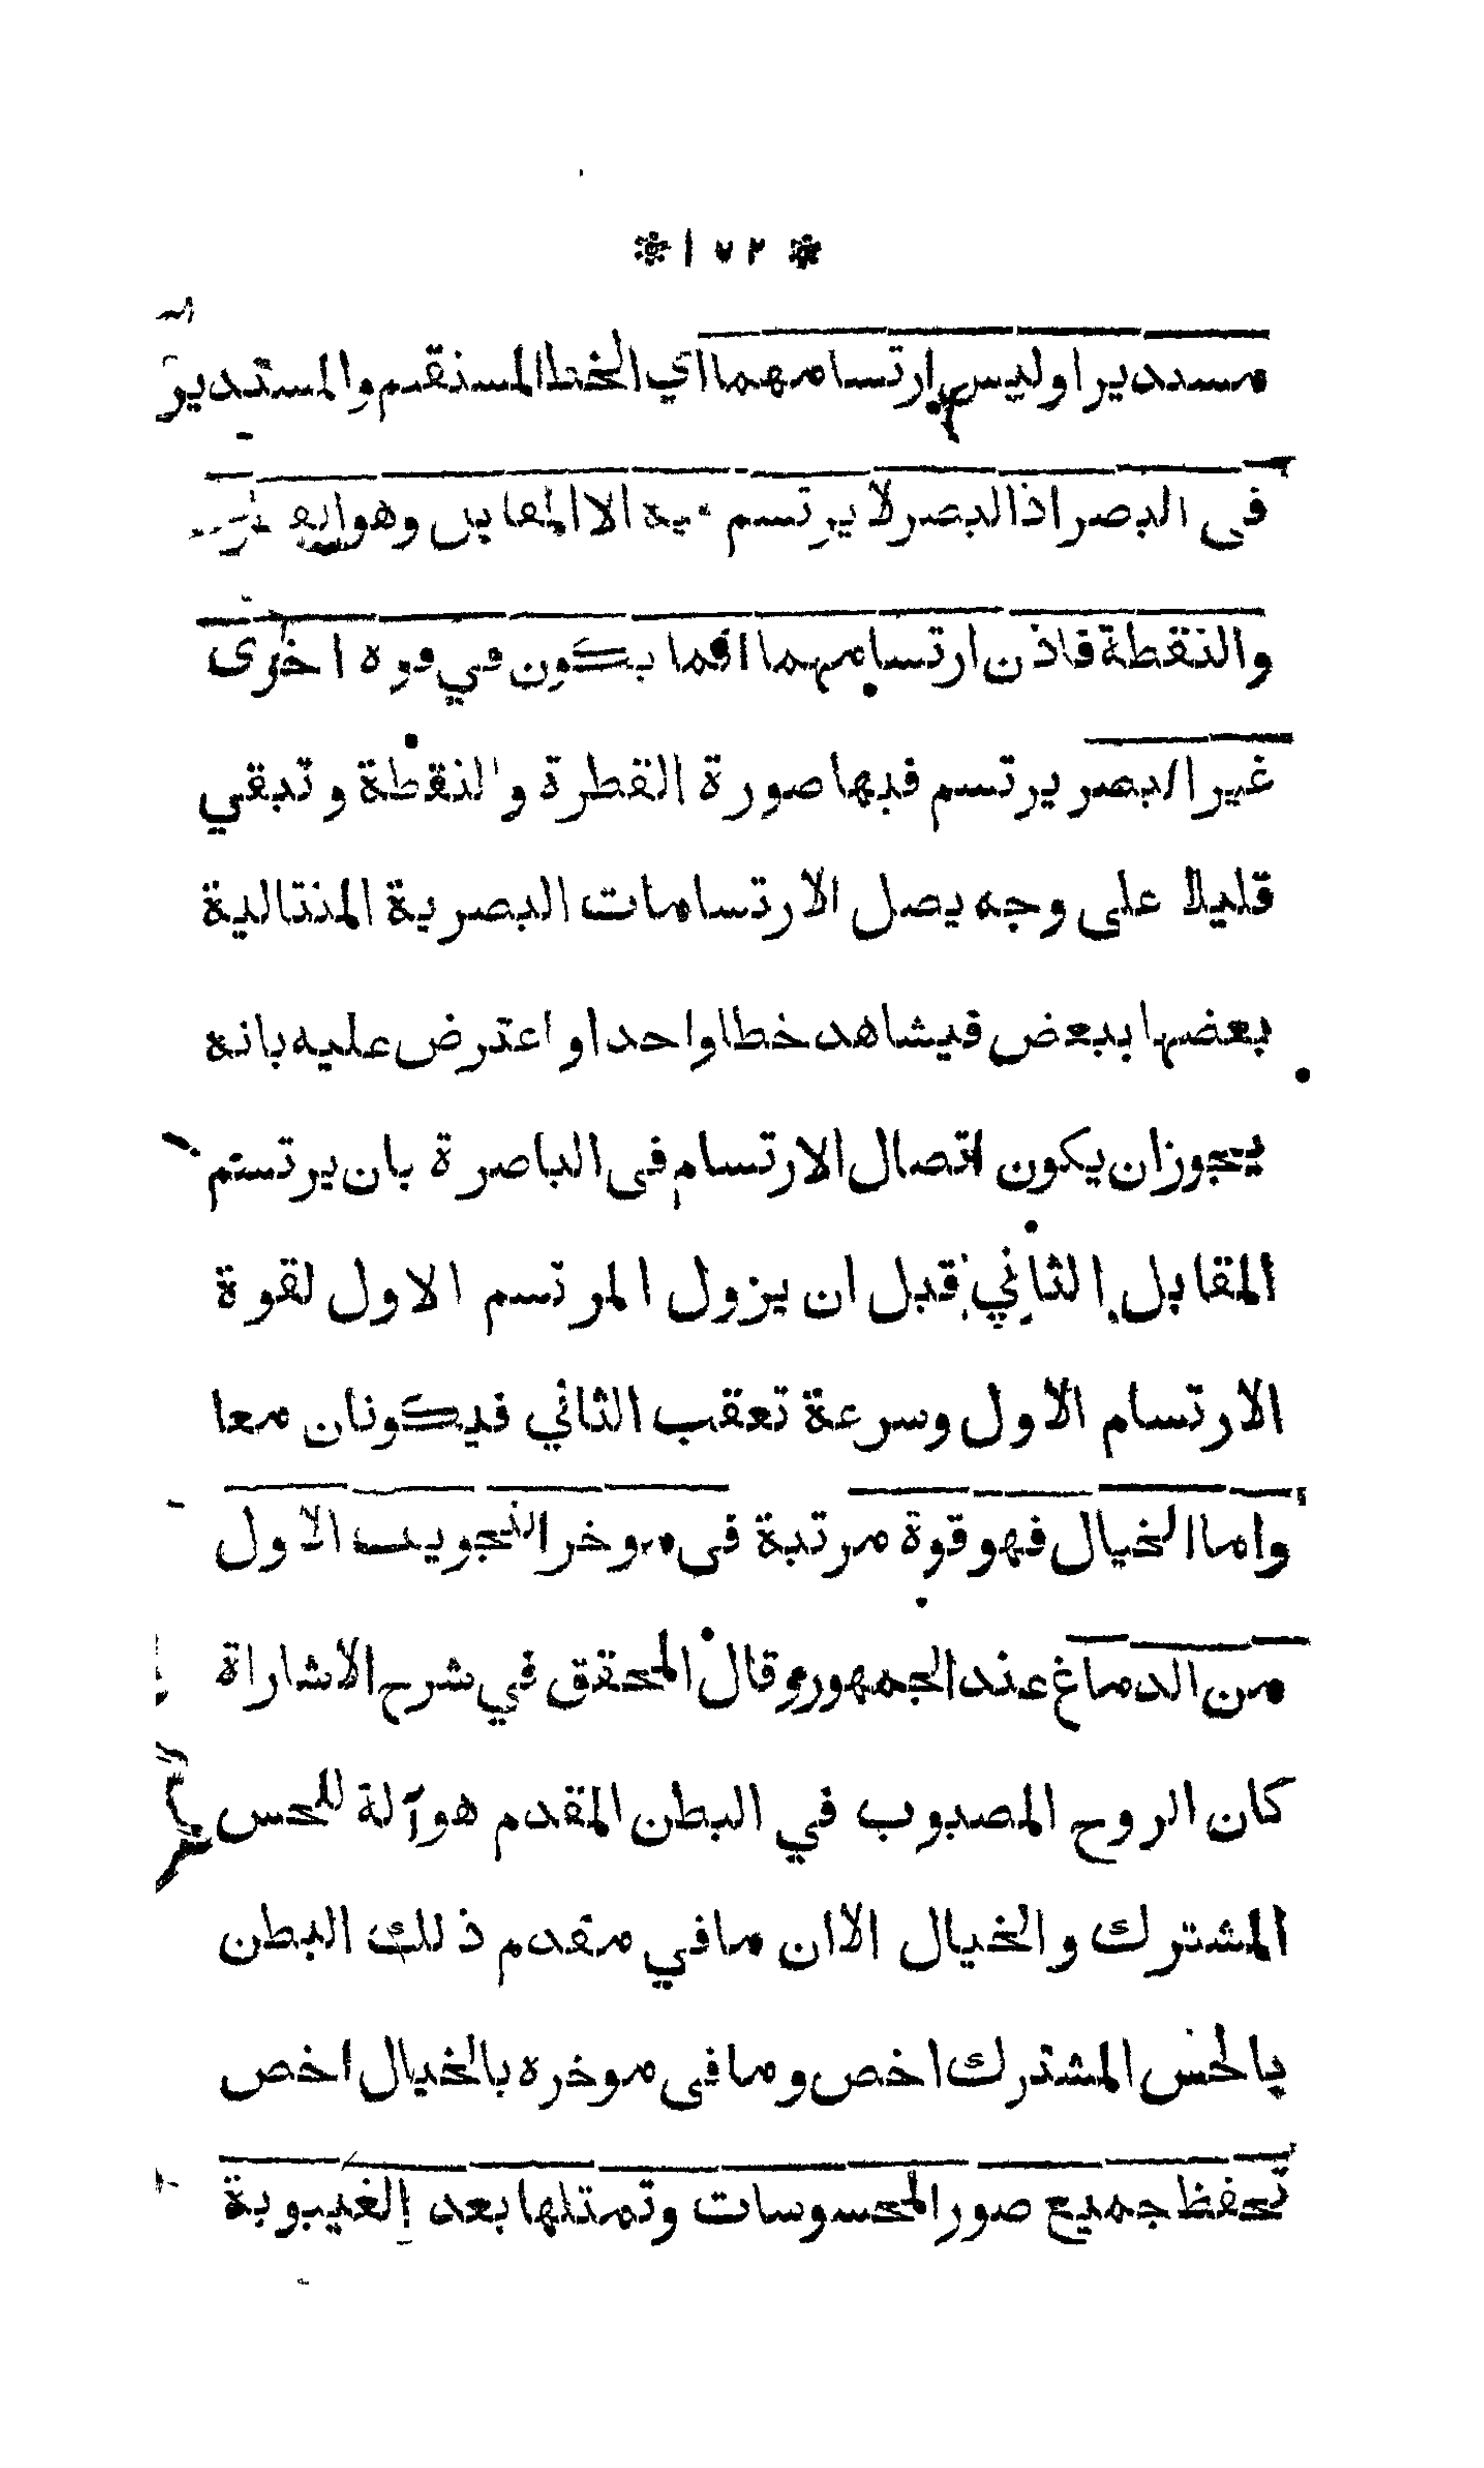 * ١٧٢ *
مستديرا وليس ارتسامهما اي الخط المستقيم والمستدير
فى البصر اذ البصر لا يرتسم فيه الا المقابل وهو القطرة
والنقطة فاذن ارتسامهما انما يكون في قوة اخرى
غير البصر يرتسم فيها صورة القطرة والنقطة وتبقي
قليلا على وجه يصل الارتسامات البصرية المتتالية
بعضها ببعض فيشاهد خطا واحدا واعترض عليه بانه
يجوز ان يكون اتصال الارتسام فى الباصرة بان يرتسم
المقابل الثاني قبل ان يزول المرتسم الاول لقوة
الارتسام الاول وسرعة تعقب الثاني فيكونان معا
واما الخيال فهو قوة مرتبة فى موخر التجويف الاول
من الدماغ عند الجمهور وقال المحقق في شرح الاشاراة
كان الروح المصبوب في البطن المقدم هو آلة للحس
المشترك والخيال الا ان ما في مقدم ذلك البطن
بالحس المشترك اخص وما فى موخره بالخيال اخص
تحفظ جميع صور المحسوسات وتمثلها بعد الغيبوبة